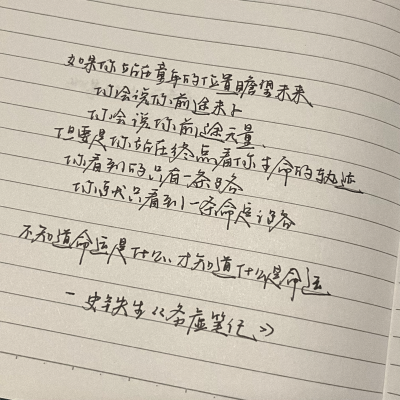 如果你站在童年的位置瞻望未来
你会说你前途未卜
你会说你前途无量
但要是你站在终点看你生命的轨迹
你看到的只有一条路
你就只看到一条命定之路
不知道命运是什么,才知道什么是命运
—史铁生《务虚笔记》